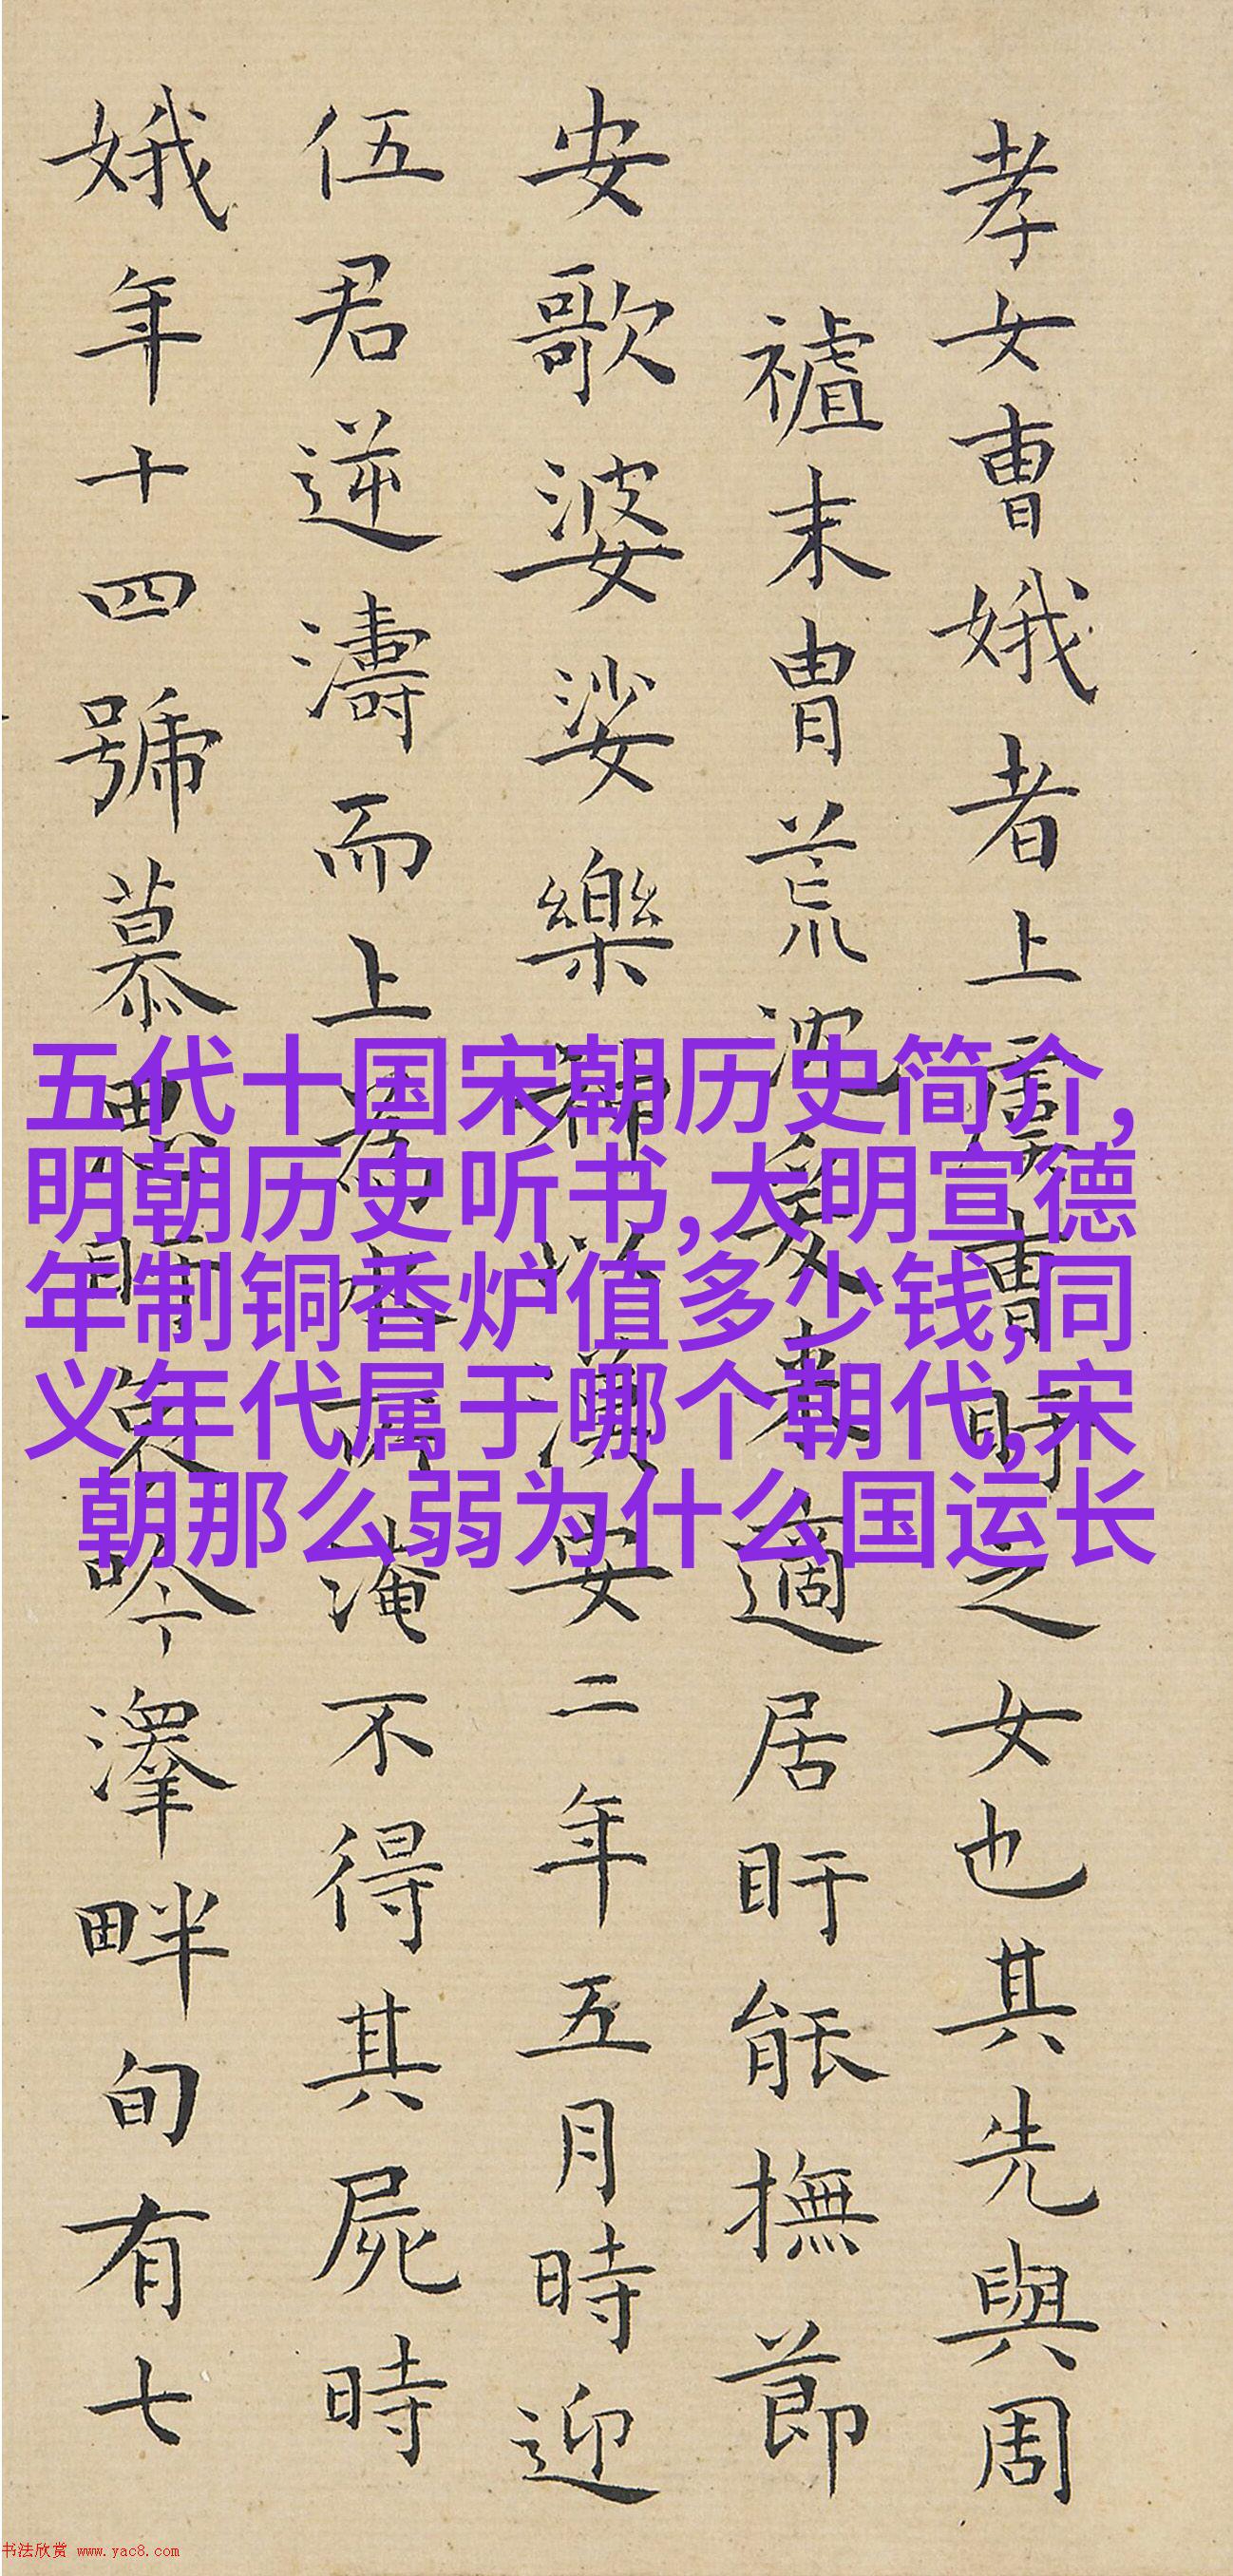 孝女曹娥者上虞曹盱之女也其先與周
末胄荒沈爰來適居盱能撫節
安歌婆娑樂神以漢安二年五月時迎
伍君逆濤而上為水所淹不得其屍時
娥年十四號慕思盱哀吟澤畔旬有七
五代十国宋朝历史简介,
明朝历史听书,大明宣德
年制铜香炉值多少钱,同
义年代属于哪个朝代,宋
朝那么弱为什么国运长
书法欣赏 www.yac8.com